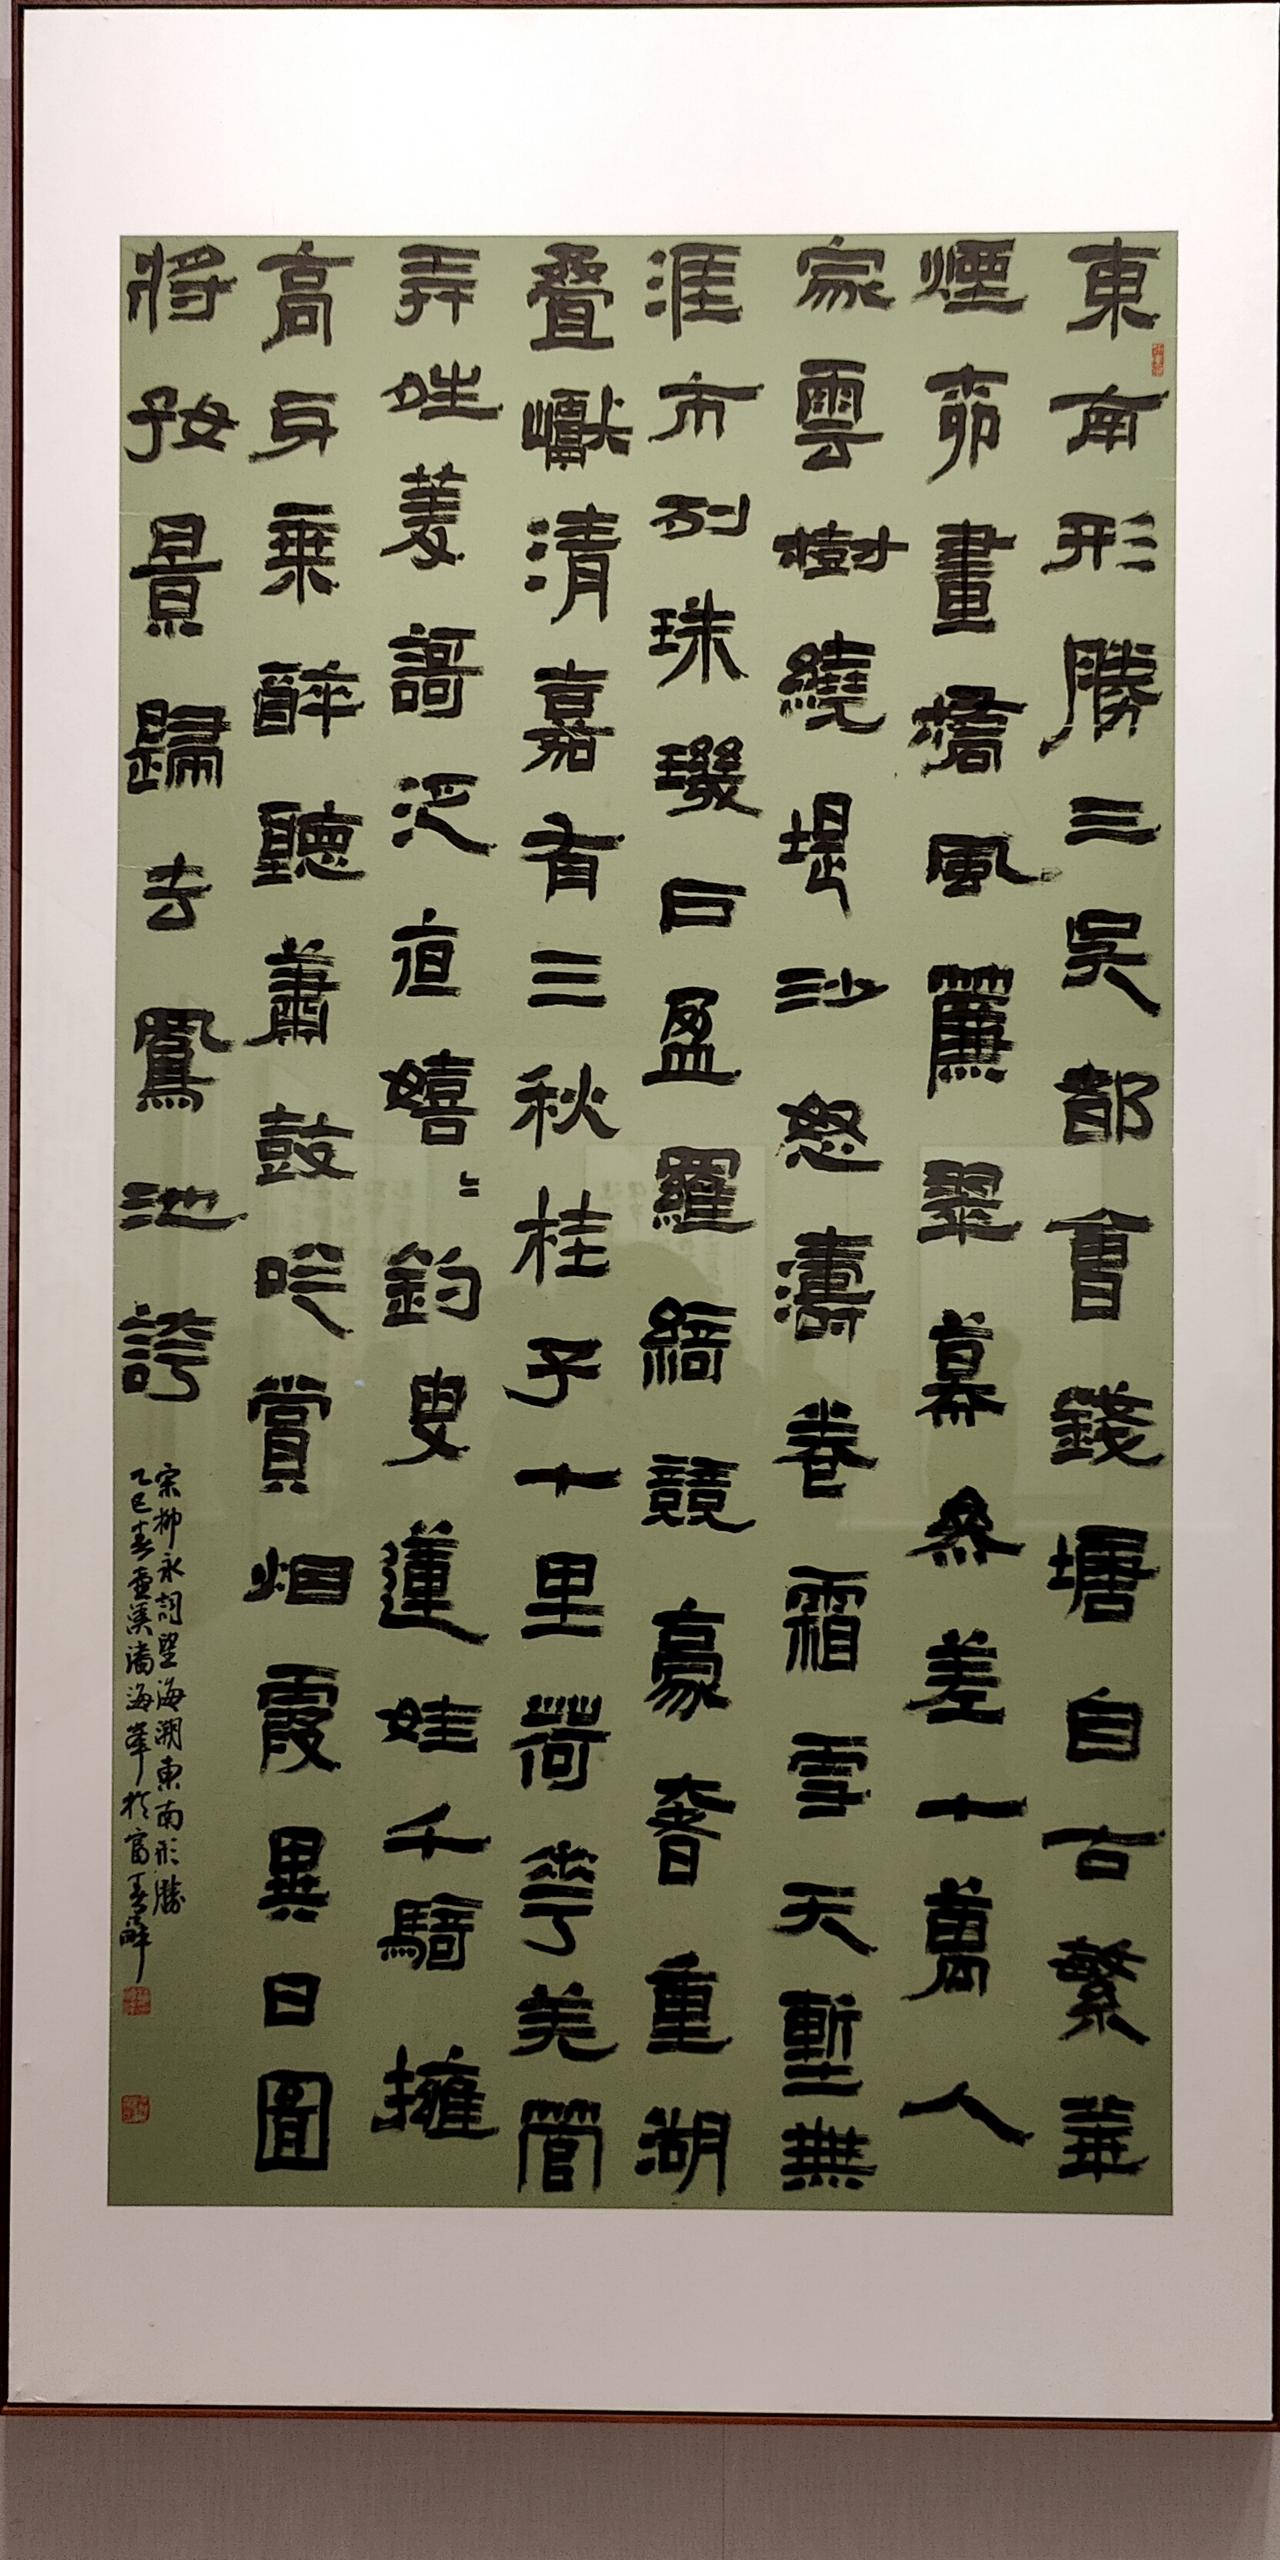 東南形勝三吳都會錢塘自古繁華
煙柳畫橋風簾翠幕叅差十萬人
家雲樹繞堤沙怒濤卷霜雪天塹無
涯市列珠璣戶盈羅綺競豪奢重湖
叠巘清嘉有三秋桂子十里荷花羌管
弄晴菱謌泛夜嬉〻釣叟蓮娃千騎擁
高牙乘醉聽簫鼓吟賞烟霞異日圖
將好景歸去鳳池誇
宋柳永詞望海潮東南形勝
乙巳春壺溪潘海峯於富春畔